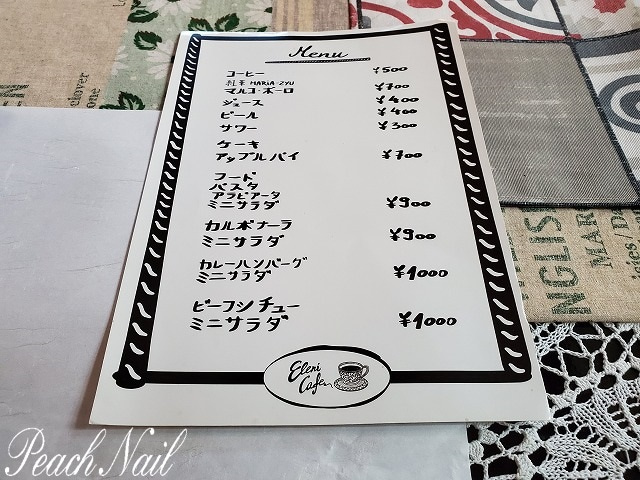 Menu
コーヒー ¥500
紅茶 MARIA-ZYU
マルコ・ポーロ ¥700
ジュース ¥400
ビール ¥400
サワー ¥300
ケーキ
アップルパイ ¥700
フード
パスタ
アラビアータ
ミニサラダ ¥900
カルボナーラ
ミニサラダ ¥900
カレーハンバーグ
ミニサラダ ¥1000
ビーフシチュー
ミニサラダ ¥1000
Eleni
Cafe
Peach Nail
clover
NGLIS
MAR